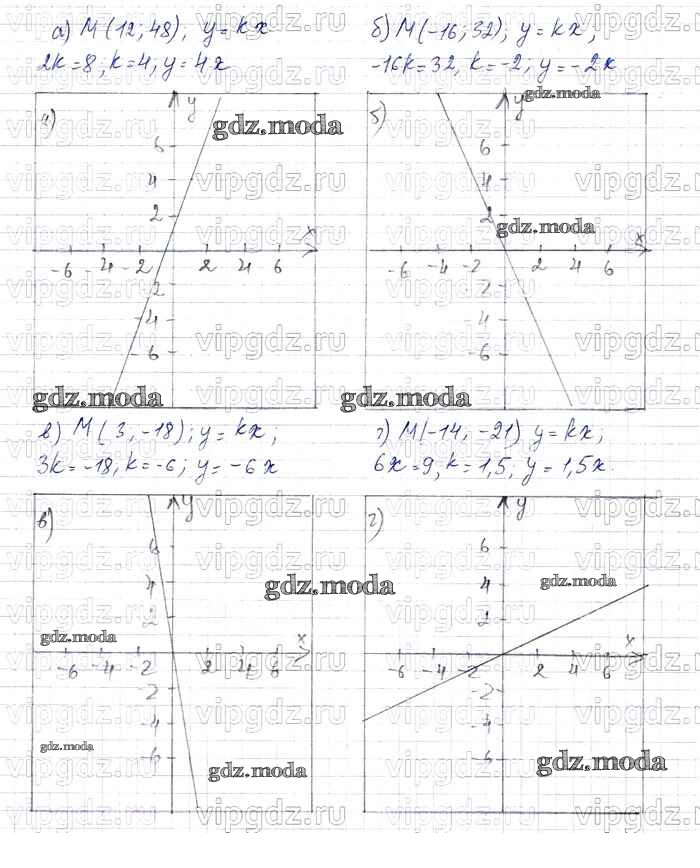 а) M(12; 48); y = kx
б) M(-16; 32); y = kx;
2k = 8; k = 4, y = 4x
-16k = 32, k = -2; y = -2x
а)
y
gdz.moda
6
4
2
x
-6 -4 -2 2 4 6
-2
-4
-6
gdz.moda
б)
y
gdz.moda
6
4
2
gdz.moda
x
-6 -4 -2 2 4 6
-2
-4
-6
gdz.moda
в) M(3, -18); y = kx;
г) M(-14, -21) y = kx;
3k = -18, k = -6; y = -6x
6x = 9, k = 1,5; y = 1,5x.
в)
y
6
4
2
gdz.moda
gdz.moda
x
-6 -4 -2 2 4 6
-2
-4
-6
gdz.moda
gdz.moda
г)
y
6
4
2
gdz.moda
x
-6 -4 -2 2 4 6
-2
-4
-6
gdz.moda
vipgdz.ru